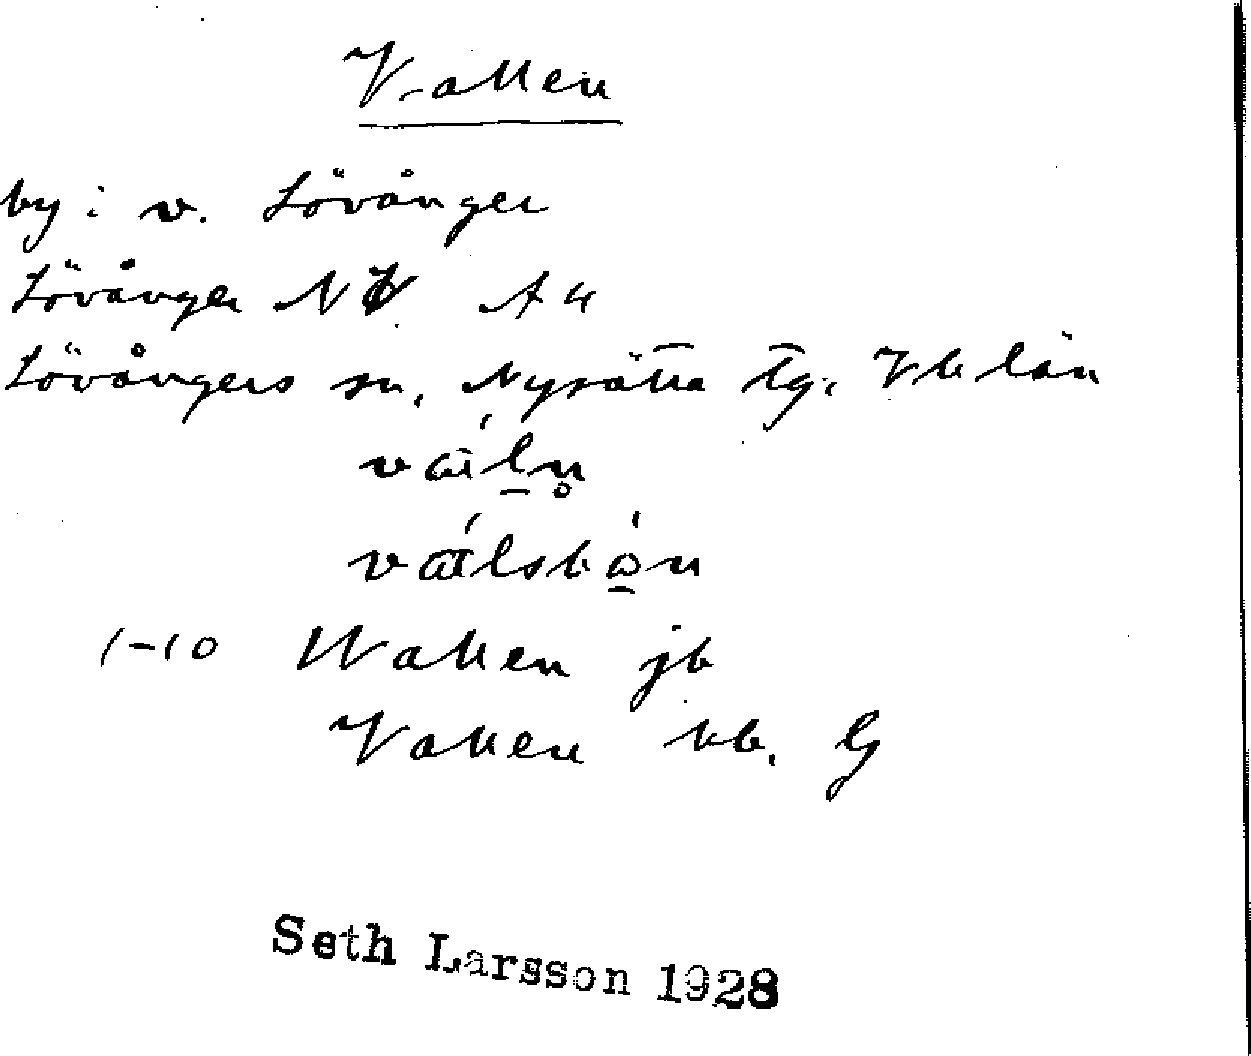 Vallen
by i v. Lövånger
Lövånger NV
Lövångers sn, Nysätra tg. Vb län
1-10 Wallen jb
Vallen kb. G
Seth Larsson 1928